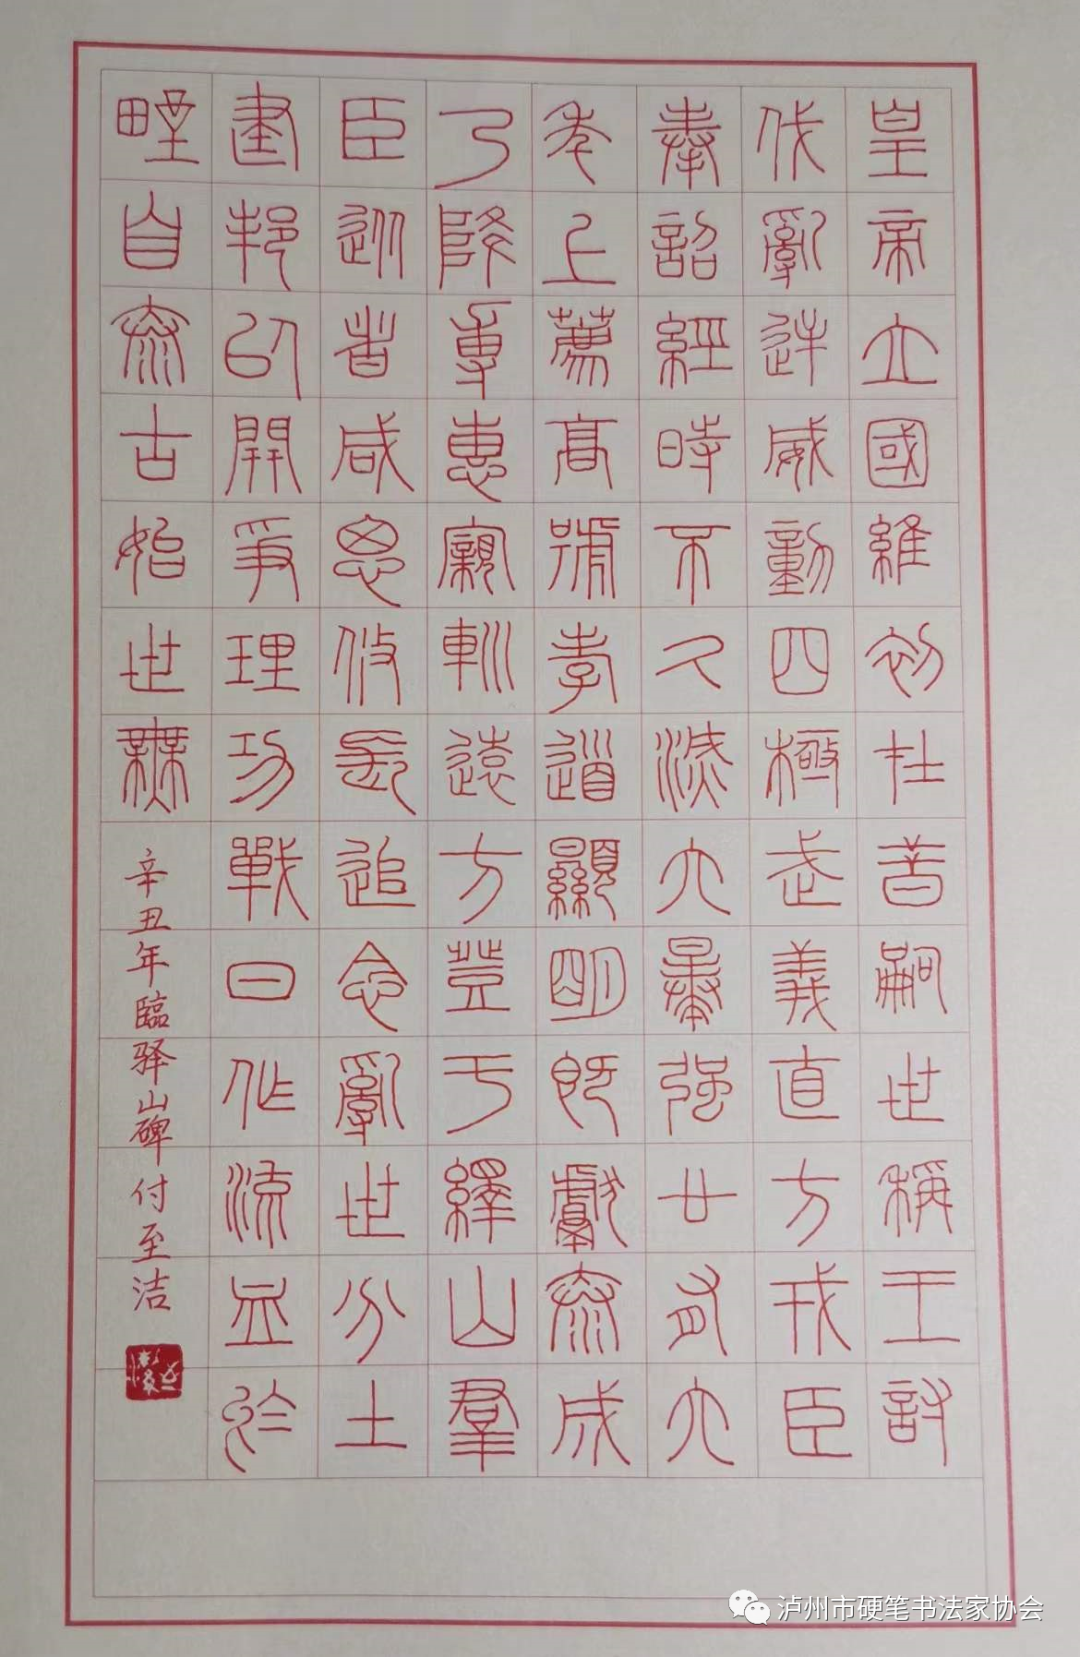 皇帝立國維初在昔嗣世稱王討
伐亂逆威動四極武義直方戎臣
奉詔經時不久滅六暴強廿有六
年上薦高號孝道顯明既獻泰成
乃降專惠親巡遠方登于繹山羣
臣從者咸思攸長追念亂世分土
建邦以開爭理功戰日作流血於
野自泰古始世無
辛丑年臨驿山碑付至洁
泸州市硬笔书法家协会